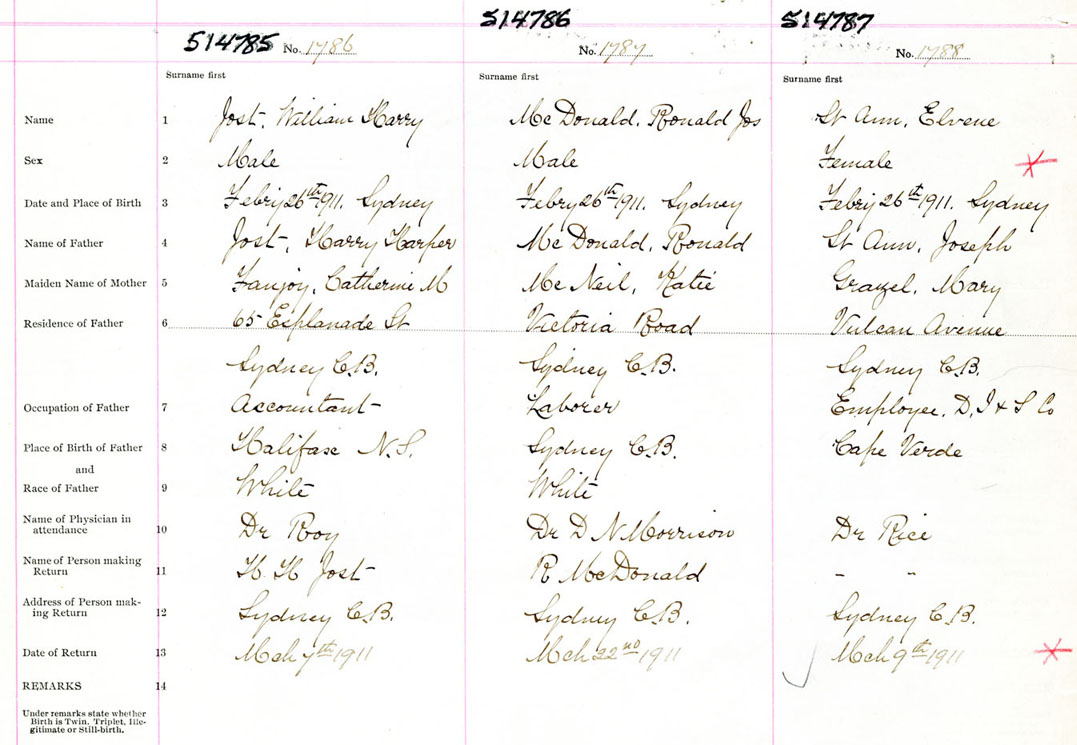 514785 No. 1786 514786 No. 1787 514787 No. 1788
Surname first Surname first Surname first
Name 1 Jost, William Harry McDonald, Ronald Jos St Ann, Elvene
Sex 2 Male Male Female
Date and Place of Birth 3 Febry 26th 1911. Sydney Febry 26th 1911. Sydney Febry 26th 1911. Sydney
Name of Father 4 Jost, Harry Harper McDonald, Ronald St Ann, Joseph
Maiden Name of Mother 5 Fanjoy, Catherine M McNeil, Katie Grazel, Mary
Residence of Father 6 65 Esplanade St Victoria Road Vulcan Avenue
Sydney C.B. Sydney C.B. Sydney C.B.
Occupation of Father 7 Accountant Laborer Employee, D, I & S Co
Place of Birth of Father 8 Halifax N.S. Sydney C.B. Cape Verde
and
Race of Father 9 White White
Name of Physician in
attendance 10 Dr Roy Dr D N Morrison Dr Rice
Name of Person making
Return 11 H. H Jost R McDonald - "
Address of Person mak-
ing Return 12 Sydney C.B. Sydney C.B. Sydney C.B.
Date of Return 13 Mch 7th 1911 Mch 22nd 1911 Mch 9th 1911
REMARKS 14
Under remarks state whether
Birth is Twin, Triplet, Ille-
gitimate or Still-birth.